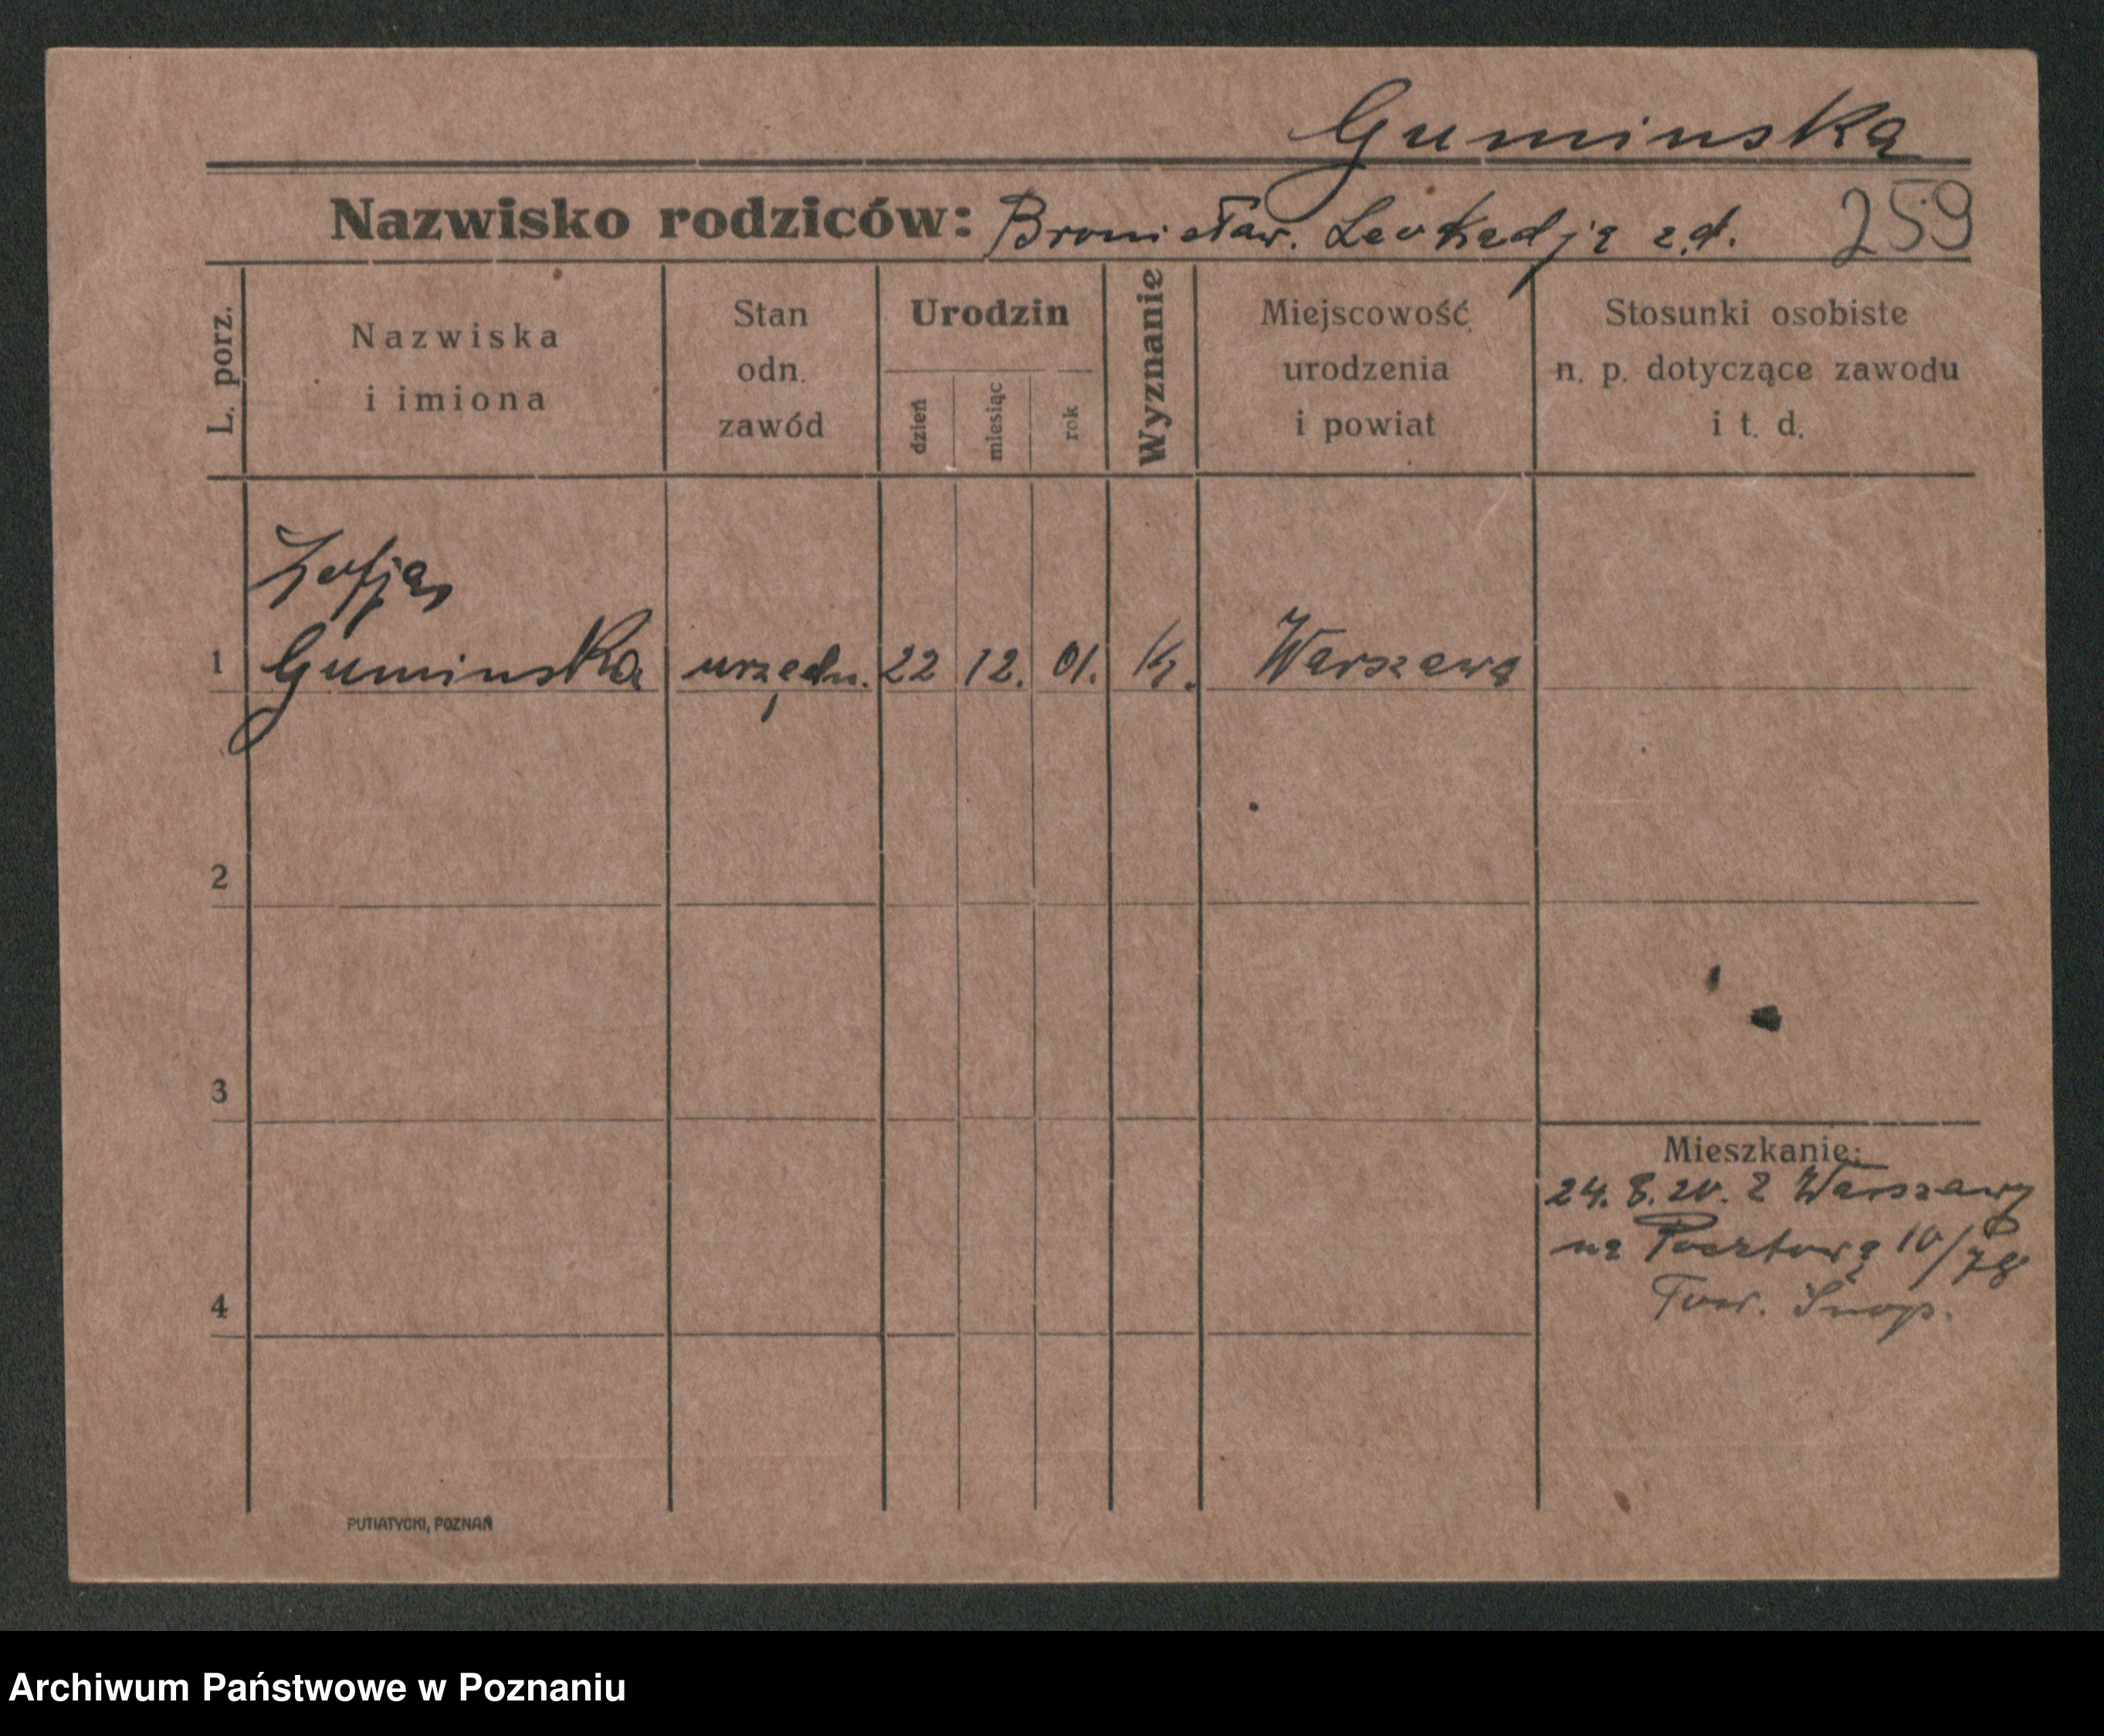 Guminska
Nazwisko rodziców: Bronisław. Leokadja z.d. 259
L. porz.
Nazwiska
i imiona
Stan
odn.
zawód
Urodzin
dzień
miesiąc
rok
Wyznanie
Miejscowość
urodzenia
i powiat
Stosunki osobiste
n. p. dotyczące zawodu
i t. d.
Zofja
1 Guminska urzędn. 22 12. 01. K. Warszawa
2
3
Mieszkanie:
24. 8. 20. Z Warszawy
na Pocztową 10/
4
PUTIATYCKI, POZNAŃ
Archiwum Państwowe w Poznaniu